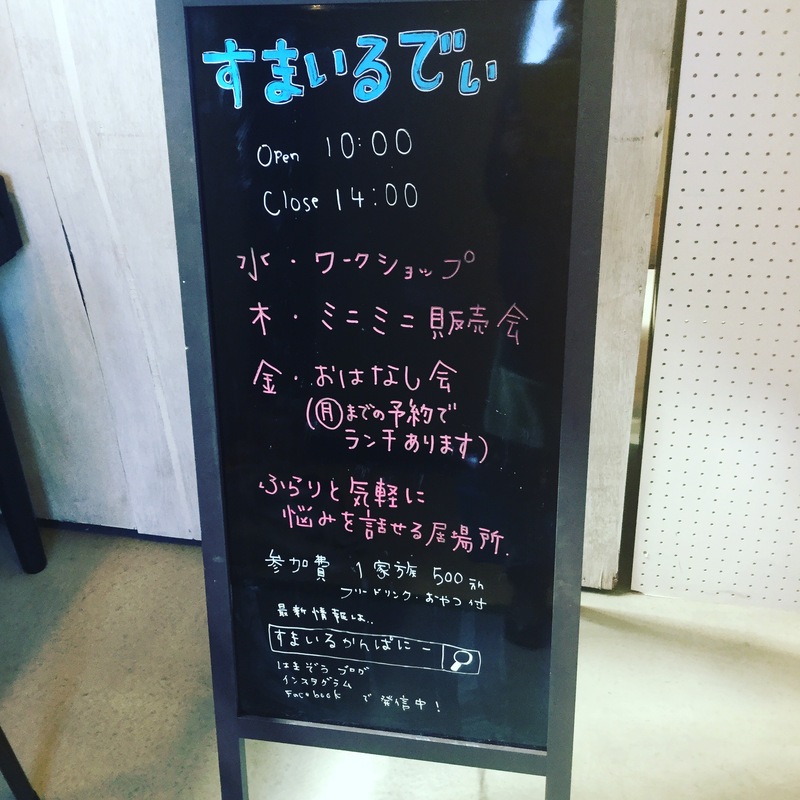 すまいるでぃ
Open 10:00
Close 14:00
水・ワークショップ
木・ミニミニ販売会
金・おはなし会
(月までの予約で
ランチあります)
ふらりと気軽に
悩みを話せる居場所.
参加費 1家族 500えん
フリードリンク・おやつ付
最新情報は..
すまいるかんぱにー
はまぞうブログ
インスタグラム
Facebook で発信中!